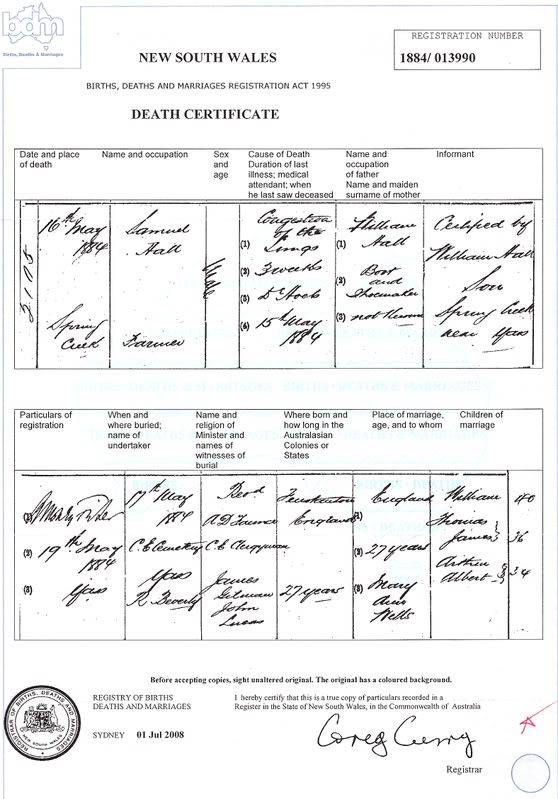 bdm
Births, Deaths & Marriages
REGISTRATION NUMBER
1884/ 013990
NEW SOUTH WALES
BIRTHS, DEATHS AND MARRIAGES REGISTRATION ACT 1995
DEATH CERTIFICATE
Date and place of death
Name and occupation
Sex and age
Cause of Death Duration of last illness; medical attendant; when he last saw deceased
Name and occupation of father Name and maiden surname of mother
Informant
16th May 1884
Spring Creek
Samuel Hall
Farmer
Male
Congestion of the
(1) Lungs
(2) 3 weeks
(3)
(4) 15th May 1884
William
(1) Hall
(2) Boot and Shoemaker
(3) not known
Certified by
William Hall
Son
Spring Creek
near Yass
Particulars of registration
When and where buried; name of undertaker
Name and religion of Minister and names of witnesses of burial
Where born and how long in the Australasian Colonies or States
Place of marriage, age, and to whom
Children of marriage
(1)
(2) 19th May 1884
(3) Yass
17th May 1884
C.E. Cemetery
Yass
R. Beverly
Revd
C.E. Clergyman
James Gilman
John Lucas
England
27 years
(1) England
(2) 27 years
(3) Mary Ann Wells
William 40
Thomas
James 36
Arthur
Albert 34
Before accepting copies, sight unaltered original. The original has a coloured background.
REGISTRY OF BIRTHS
DEATHS AND MARRIAGES
SYDNEY 01 Jul 2008
I hereby certify that this is a true copy of particulars recorded in a
Register in the State of New South Wales, in the Commonwealth of Australia
Greg Curry
Registrar
REGISTRAR OF BIRTHS, DEATHS AND MARRIAGES
NEW SOUTH WALES